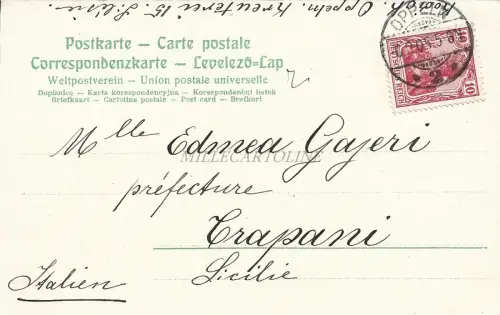 Oppeln. Kreutzerei 15. Silesia.
Postkarte – Carte postale
Correspondenzkarte – Levelező=Lap
Weltpostverein – Union postale universelle
Dopisnica – Karta korespondencyjna – Korespondenční lístek
Briefkaart – Cartolina postale – Post card – Brefkort
OPPELN
10 10
Mlle Edmea Gajeri
MILLECARTOLINE
préfecture
Trapani
Sicilie
Italien